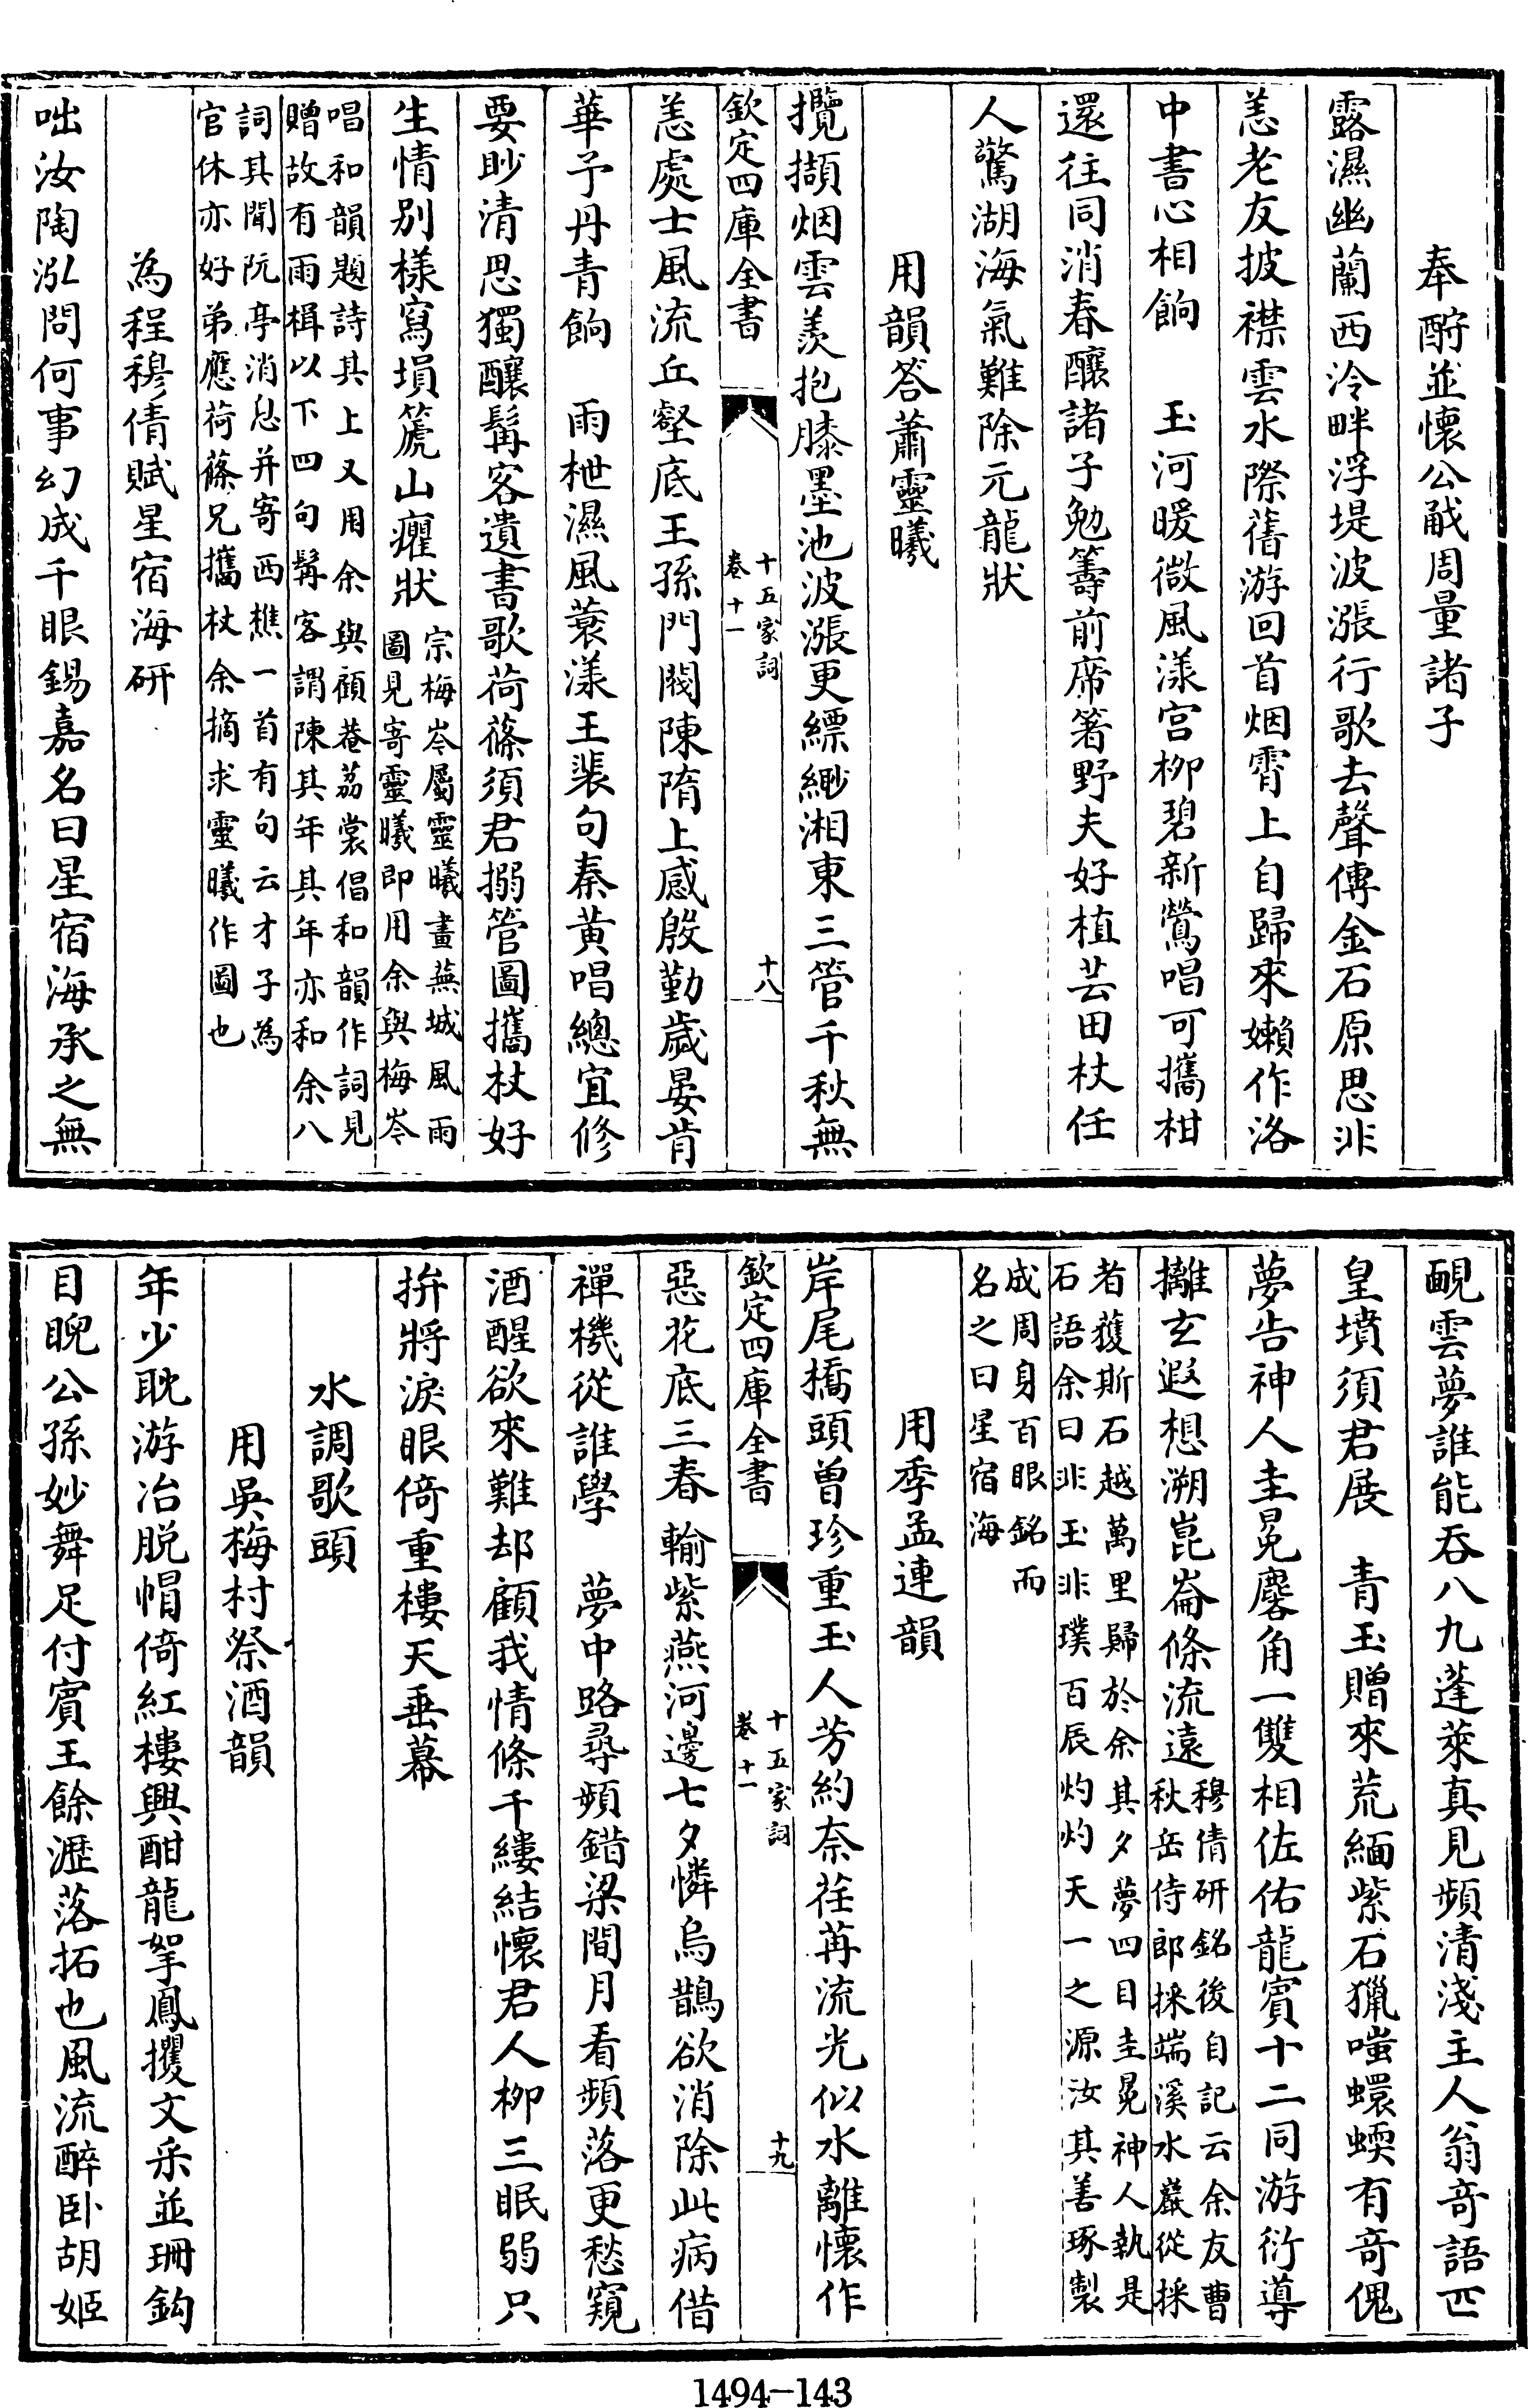 奉酧並懷公㦷周量諸子
露濕幽蘭西泠畔浮堤波漲行歌去聲傳金石原思非
恙老友披襟雲水際舊游回首烟霄上自歸來嬾作洛
中書心相餉　玉河暖微風漾宫栁碧新鶯唱可攜柑
還往同消春釀諸子勉籌前席箸野夫好植芸田杖任
人驚湖海氣難除元龍狀
用韻答蕭靈曦
攬擷烟雲羡抱膝墨池波漲更縹緲湘東三管千秋無
欽定四庫全書　十五家詞　卷十一　十八
恙處士風流丘壑底王孫門閥陳隋上感殷勤歲晏肯
華予丹青餉　雨枻濕風蓑漾王裴句秦黄唱總宜修
要眇清思獨釀髯客遺書歌荷蓧須君搦管圖攜杖好
生情别樣寫塤篪山癯狀宗梅岑屬靈曦畫蕪城風雨
圖見寄靈曦即用余與梅岑
唱和韻題詩其上又用余與顧菴茘裳倡和韻作詞見
贈故有雨楫以下四句髯客謂陳其年其年亦和余八
詞其聞阮亭消息并寄西樵一首有句云才子為
官休亦好弟應荷蓧兄攜杖余摘求靈曦作圖也
為程穆倩賦星宿海研
咄汝陶泓問何事幻成千眼錫嘉名曰星宿海承之無
靦雲夢誰能吞八九蓬萊真見頻清淺主人翁竒語匹
皇墳須君展　青玉贈來荒緬紫石獵嗤蠉蝡有竒傀
夢告神人圭冕麐角一雙相佐佑龍賓十二同游衍導
摛玄遐想溯崑崙條流遠穆倩研銘後自記云余友曹
秋岳侍郎採端溪水巖從採
者獲斯石越萬里歸於余其夕夢四目圭冕神人執是
石語余曰非玉非璞百辰灼灼天一之源汝其善琢製
成周身百眼銘而
名之曰星宿海
用季孟連韻
岸尾橋頭曾珍重玉人芳約奈荏苒流光似水離懷作
欽定四庫全書　十五家詞　卷十一　十九
惡花底三春輸紫燕河邊七夕憐烏鵲欲消除此病借
禪機從誰學　夢中路尋頻錯梁間月看頻落更愁窺
酒醒欲來難却顧我情條千縷結懷君人栁三眠弱只
拚將淚眼倚重樓天垂幕
水調歌頭
用吳梅村祭酒韻
年少耽游冶脱帽倚紅樓興酣龍拏鳳攫文采並珊鈎
目睨公孫妙舞足付賓王餘瀝落拓也風流醉卧胡姬
1494-143